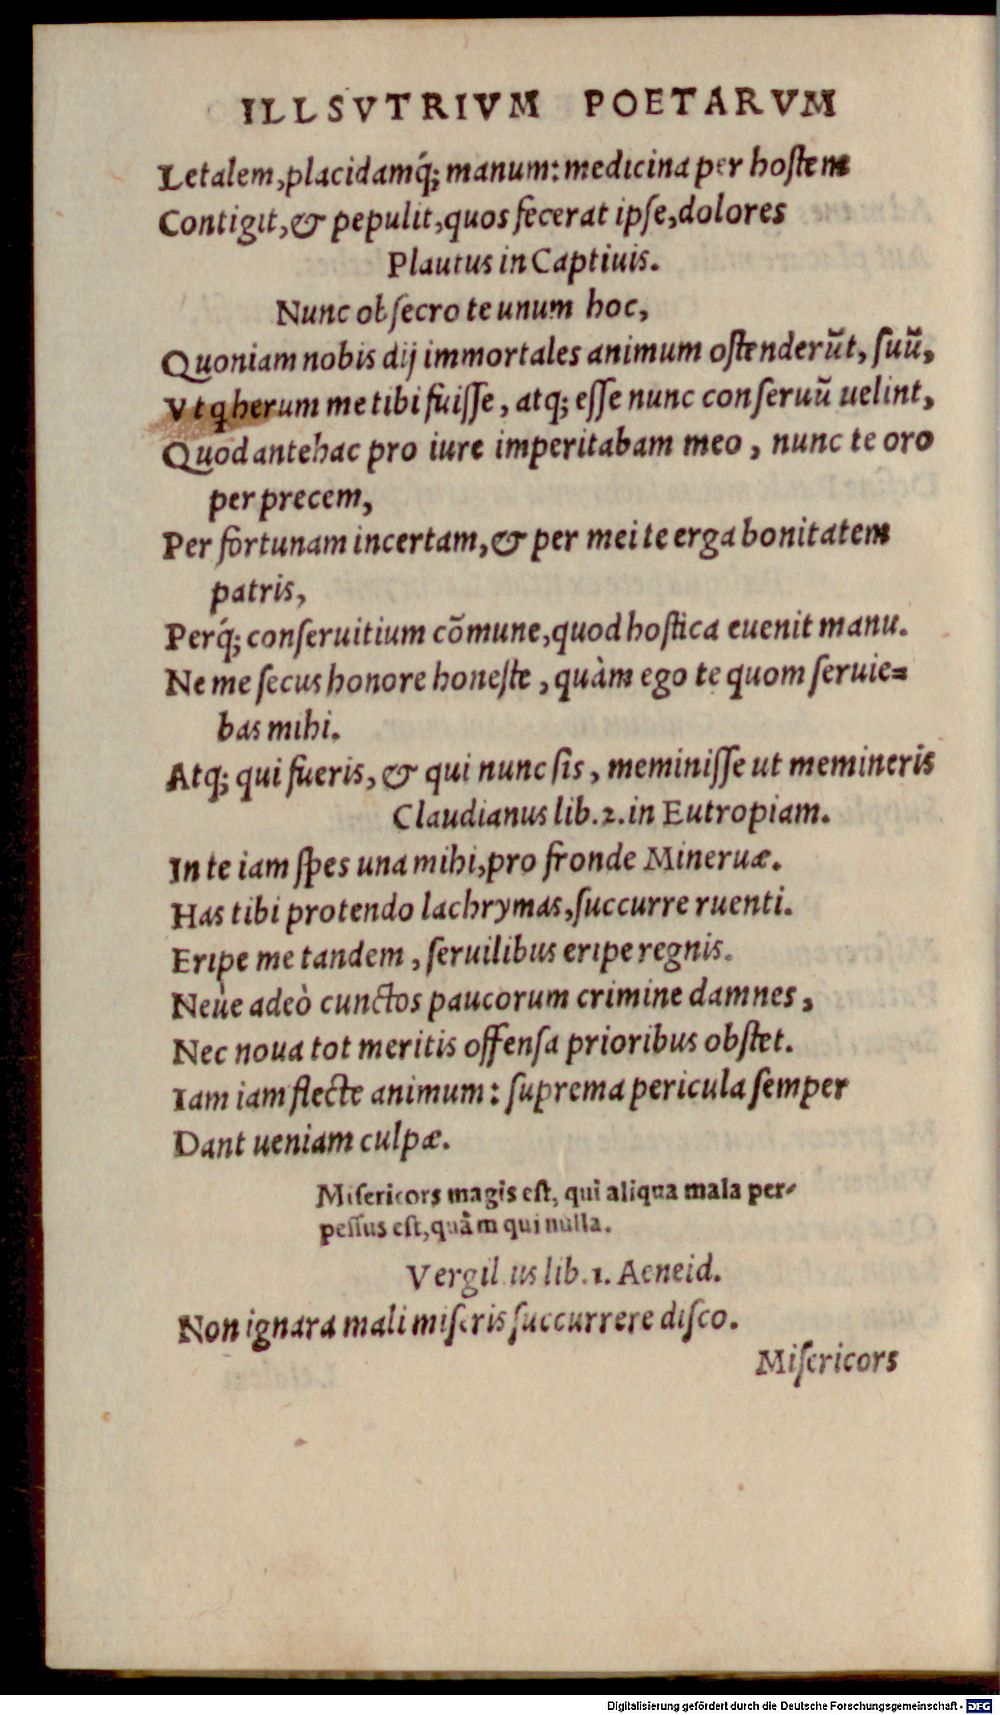 ILLSVTRIVM POETARVM
Letalem, placidamq́; manum: medicina per hostem
Contigit, & pepulit, quos fecerat ipse, dolores
Plautus in Captiuis.
Nunc obsecro te unum hoc,
Quoniam nobis dij immortales animum ostenderūt, suū,
Vt qherum me tibi fuisse, atq; esse nunc conseruū uelint,
Quod antehac pro iure imperitabam meo, nunc te oro
per precem,
Per fortunam incertam, & per mei te erga bonitatem
patris,
Perq́; conseruitium cōmune, quod hostica euenit manu.
Ne me secus honore honeste, quàm ego te quom seruie=
bas mihi.
Atq; qui fueris, & qui nunc sis, meminisse ut memineris
Claudianus lib. 2. in Eutropiam.
In te iam spes una mihi, pro fronde Mineruæ.
Has tibi protendo lachrymas, succurre ruenti.
Eripe me tandem, seruilibus eripe regnis.
Neùe adeò cunctos paucorum crimine damnes,
Nec noua tot meritis offensa prioribus obstet.
Iam iam flecte animum: suprema pericula semper
Dant ueniam culpæ.
Misericors magis est, qui aliqua mala per-
pessus est, quàm qui nulla.
Vergil us lib. 1. Aeneid.
Non ignara mali miseris succurrere disco.
Misericors
Digitalisierung gefördert durch die Deutsche Forschungsgemeinschaft - DFG